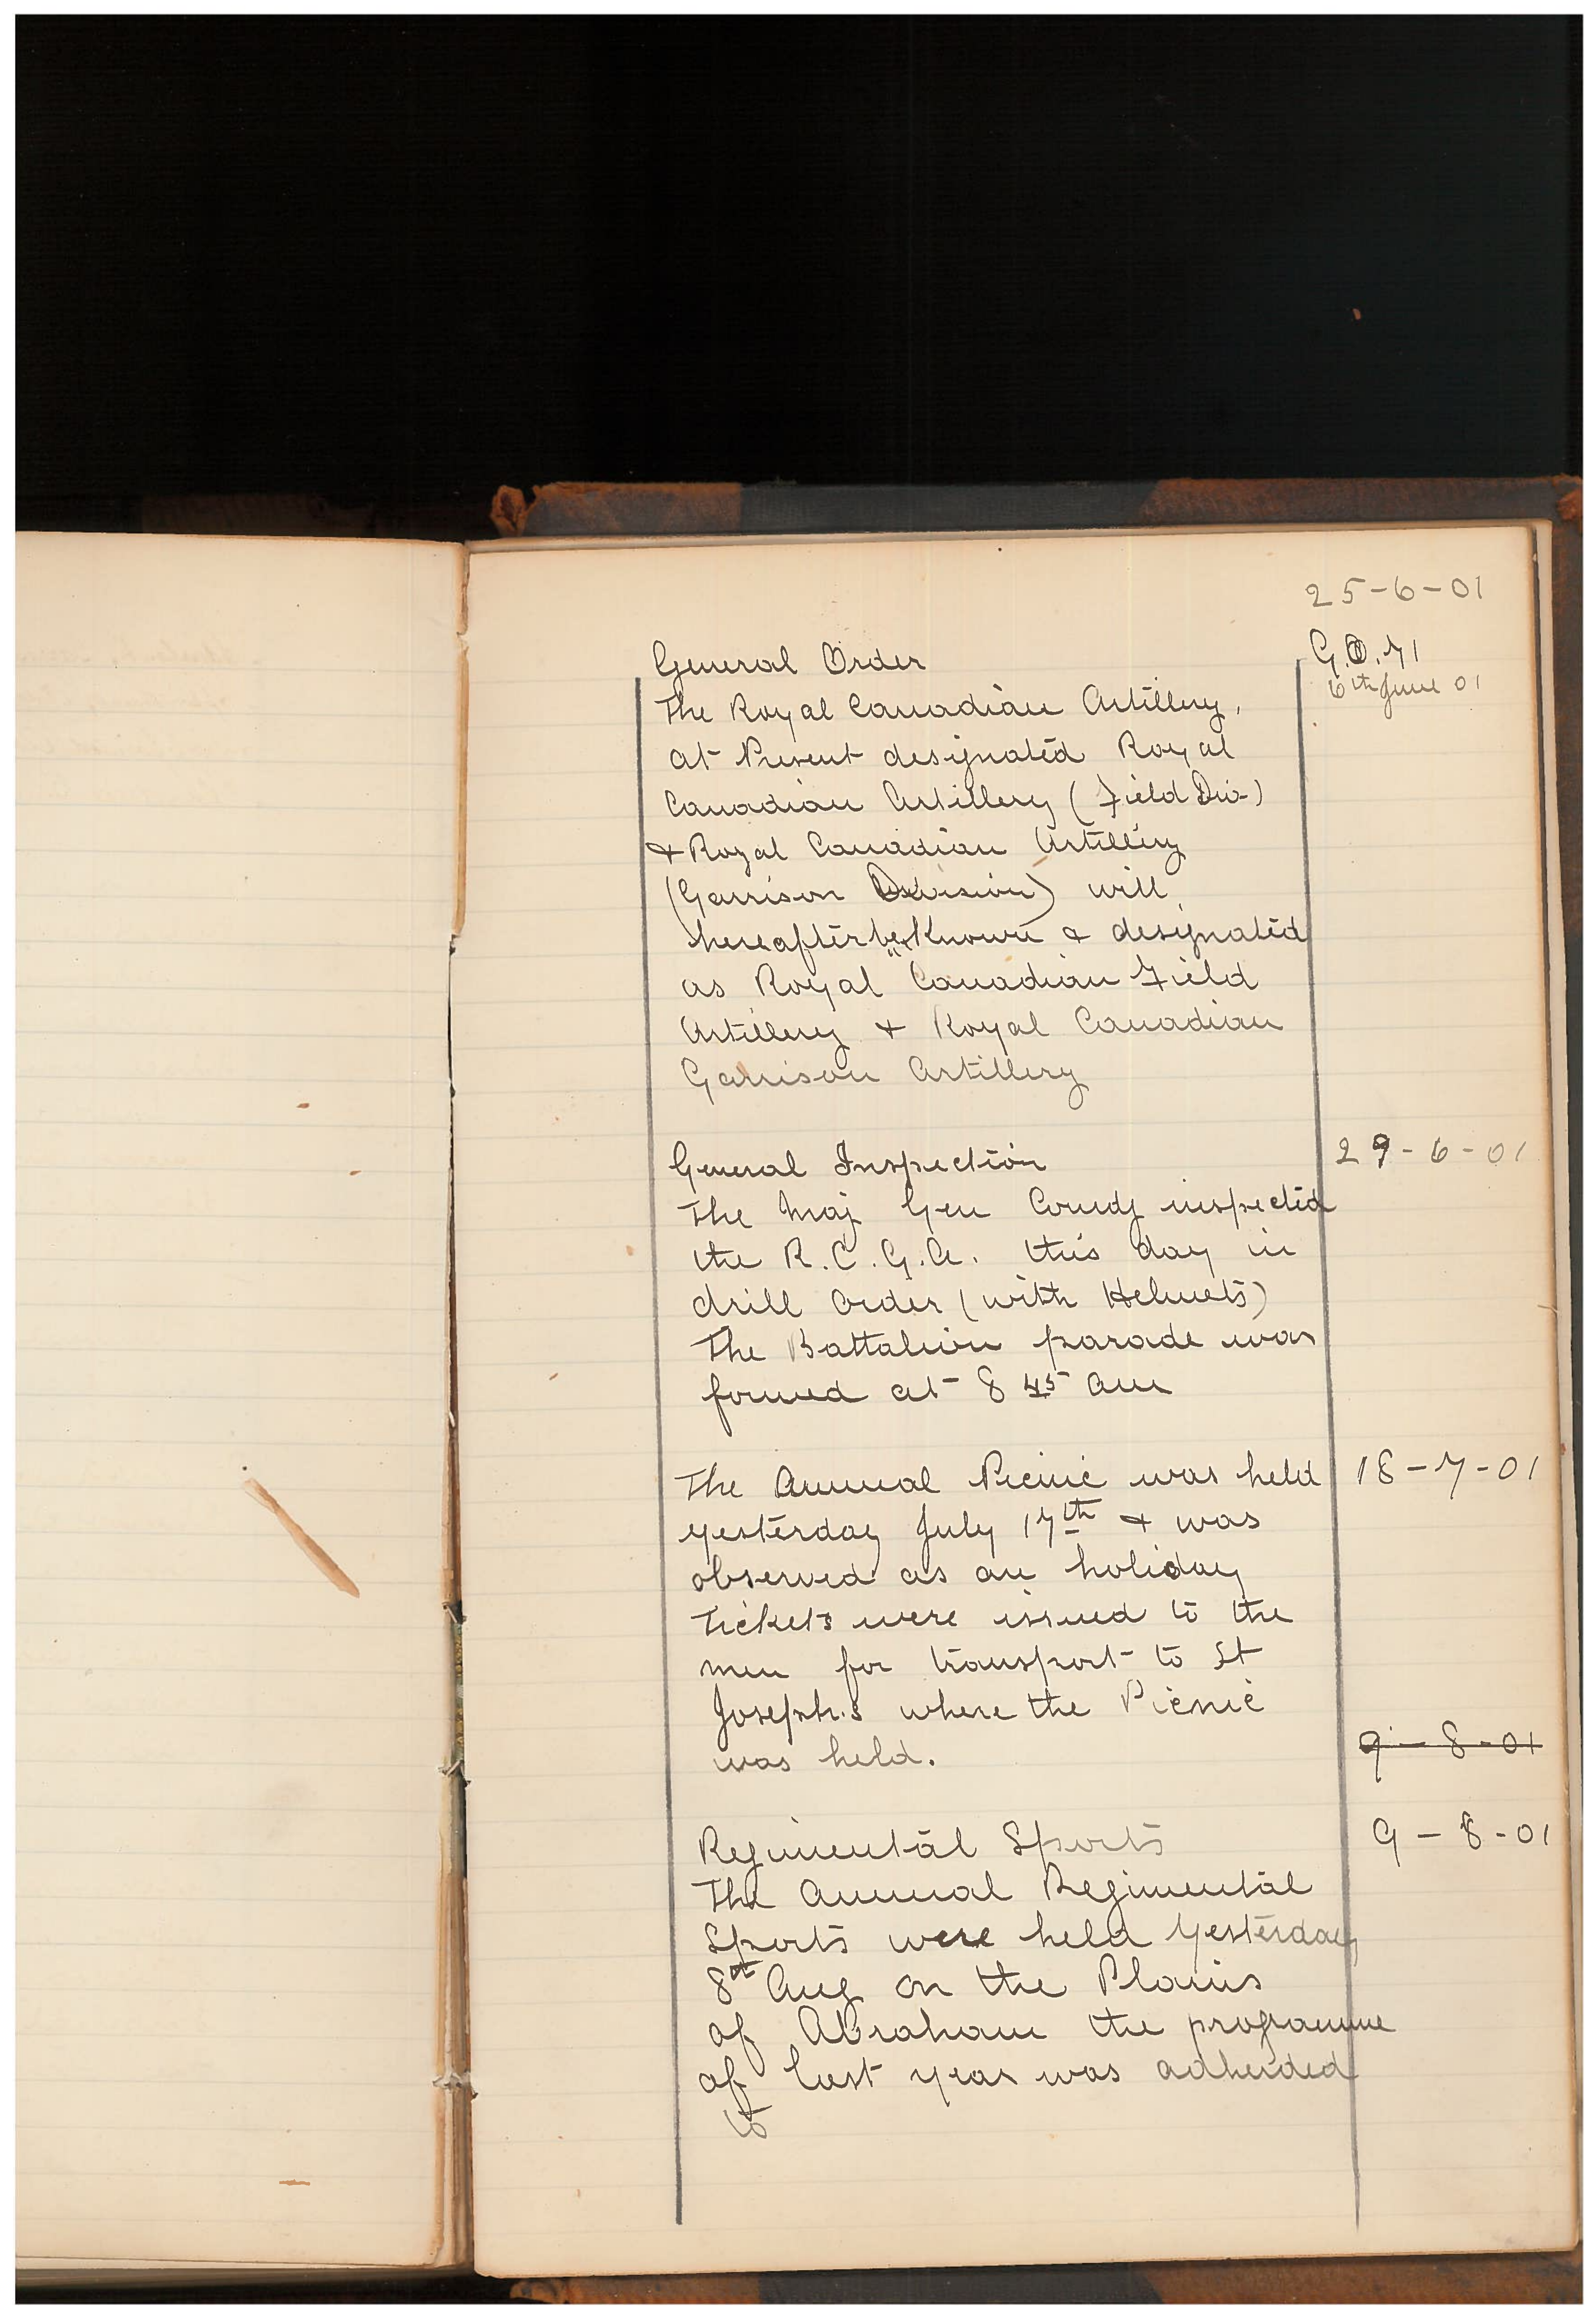 25-6-01
General Order
G.O. 71
6th June 01
The Royal Canadian Artillery,
at Present designated Royal
Canadian Artillery (Field Div-)
& Royal Canadian Artillery
(Garrison Division) will
hereafter be Known & designated
as Royal "Canadian Field
Artillery & Royal Canadian
Garrison Artillery
General Inspection 29-6-01
The Maj Gen Comdg inspected
the R.C.G.A. this day in
drill order (with Helmets)
The Battalion parade was
formed at 8 45 am
The Annual Picnic was held 18-7-01
yesterday July 17th & was
observed as an holiday
Tickets were issued to the
men for transport to St
Joseph.s where the Picnic
was held.
9-8-01
Regimental Sports 9-8-01
The Annual Regimental
Sports were held Yesterday
8th Aug on the Plains
of Abraham the programme
of last year was adheided
to